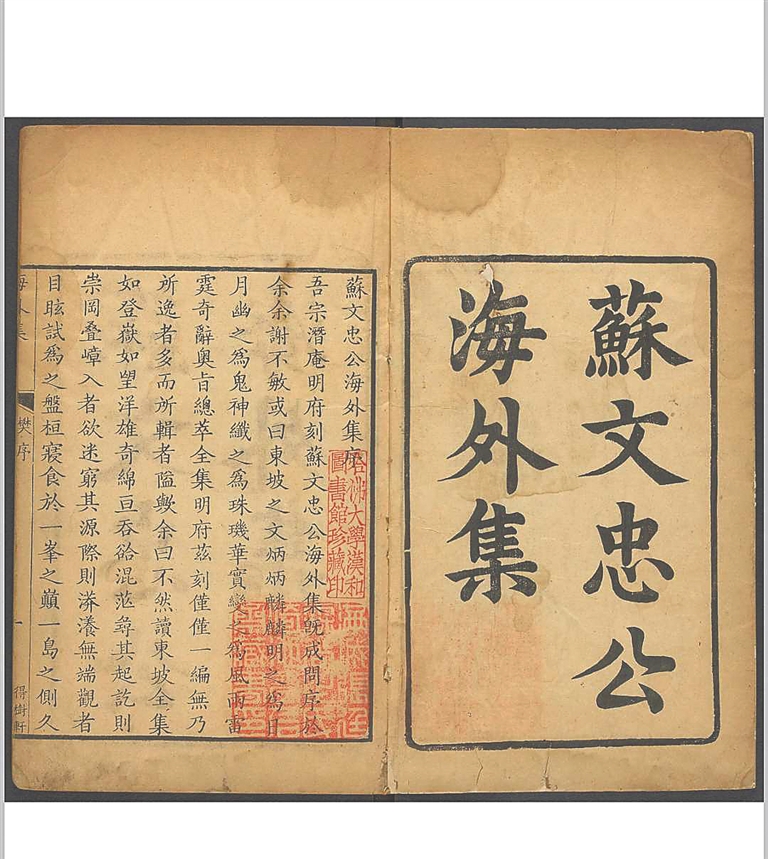 蘇文忠公
海外集
蘇文忠公海外集序
吾宗潛庵明府刻蘇文忠公海外集既成問序於
余余謝不敏或曰東坡之文炳炳麟麟明之為日
月幽之為鬼神纖之為珠璣華實變之為風雨雷
霆奇辭奧旨總萃全集明府茲刻僅僅一編無乃
所逸者多而所輯者隘歟余曰不然讀東坡全集
如登嶽如望洋雄奇綿亘吞谽混茫尋其起訖則
崇岡疊嶂入者欲迷窮其源際則漭瀁無端觀者
目眩試為之盤桓寢食於一峯之巔一島之側久
海外集
樊序
一
得樹軒
哈佛大學漢和
圖書館珍藏印